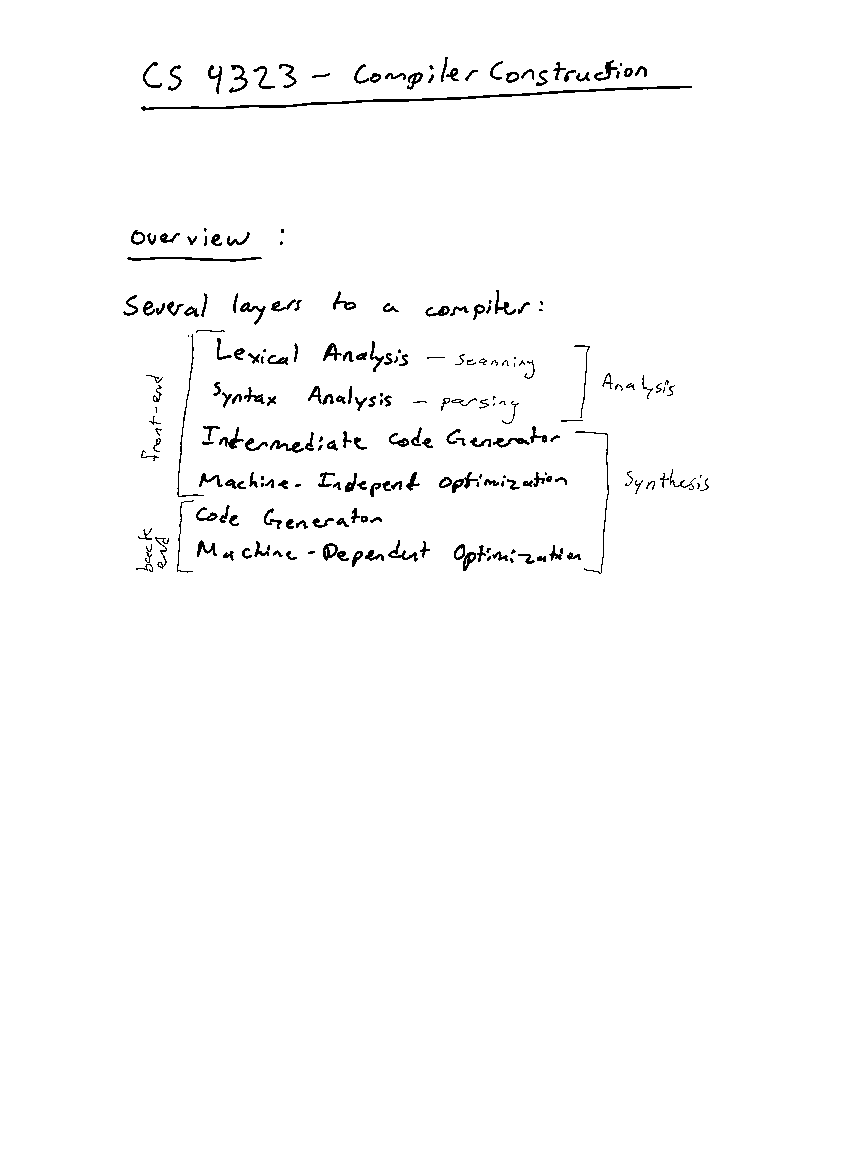 CS 4323 - Compiler Construction
overview :
Several layers to a compiler:
Lexical Analysis - scanning
Syntax Analysis - parsing
Analysis
Intermediate Code Generator
Machine-Indepent optimization
front-end
Code Generaton
Machine-Dependent Optimization
back
end
Synthesis